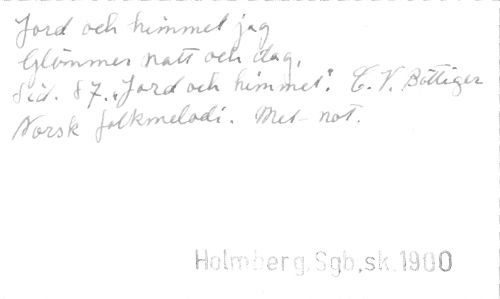 Jord och himmel jag
Glömmer natt och dag,
Sid. 87. "Jord och himmel". C. V. Böttiger
Norsk folkmelodi. Mel-not.
Holmberg, Sgb, sk. 1900